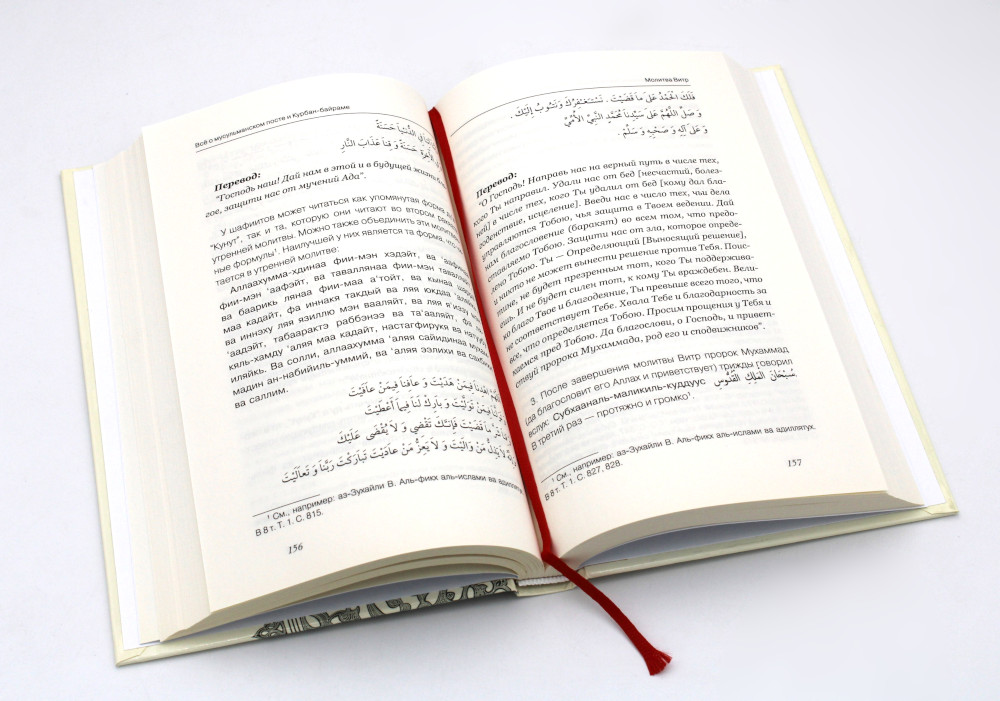 Всё о мусульманском посте и Курбан-байраме
الدُّنْيَا حَسَنَةً
حَسَنَةً وَ قِنَا عَذَابَ النَّارِ
Перевод:
"Господь наш! Дай нам в этой и в будущей жизни
гое, защити нас от мучений Ада".
У шафиитов может читаться как упомянутая форма
"Кунут", так и та, которую они читают во втором
утренней молитвы. Можно также объединить эти молитвен-
ные формулы¹. Наилучшей у них является та форма, что
тается в утренней молитве:
Аллаахумма-хдинаа фии-мэн хэдэйт, ва 'аафинаа
фии-мэн 'аафэйт, ва таваллянаа фии-мэн таваллайт,
ва баарик лянаа фии-маа а'тойт, ва кынаа шарра
маа кадайт, фа иннакя такдый ва ляя юкдаа 'аляйк,
ва иннэху ляя язиллю мэн вааляйт, ва ляя я'иззу
'аадэйт, табаарактэ раббэнээ ва та'ааляйт, фа
кяль-хамду 'аляя маа кадайт, настагфирукя ва
иляйкь. Ва солли, аллаахумма 'аляя сайидинаа
мадин ан-набийиль-уммий, ва 'аляя ээлихи ва сахбихи
ва саллим.
اهْدِنَا فِيمَنْ هَدَيْتَ وَ عَافِنَا فِيمَنْ عَافَيْتَ
فِيمَنْ تَوَلَّيْتَ وَ بَارِكْ لَنَا فِيمَا أَعْطَيْتَ
شَرَّ مَا قَضَيْتَ فَإِنَّكَ تَقْضِي وَ لَا يُقْضَى عَلَيْكَ
لَا يَذِلُّ مَنْ وَالَيْتَ وَ لَا يَعِزُّ مَنْ عَادَيْتَ تَبَارَكْتَ رَبَّنَا وَ تَعَالَيْتَ
¹ См., например: аз-Зухайли В. Аль-фикх аль-ислами ва адиллятух.
В 8 т. Т. 1. С. 815.
156
Молитва Витр
فَلَكَ الْحَمْدُ عَلَى مَا قَضَيْتَ . نَسْتَغْفِرُكَ وَ نَتُوبُ إِلَيْكَ .
وَ صَلِّ اللَّهُمَّ عَلَى سَيِّدِنَا مُحَمَّدٍ النَّبِيِّ الْأُمِّيِّ
وَ عَلَى آلِهِ وَ صَحْبِهِ وَ سَلِّمْ .
Перевод:
"О Господь! Направь нас на верный путь в числе тех,
кого Ты направил. Удали нас от бед [несчастий, болез-
ней] в числе тех, кого Ты удалил от бед [кому дал бла-
годенствие, исцеление]. Введи нас в число тех, чьи дела
управляются Тобою, чья защита в Твоем ведении. Дай
нам благословение (баракят) во всем том, что предо-
ставляемо Тобою. Защити нас от зла, которое опреде-
лено Тобою. Ты — Определяющий [Выносящий решение],
и никто не может вынести решение против Тебя. Поис-
тине, не будет презренным тот, кого Ты поддержива-
ешь. И не будет силен тот, к кому Ты враждебен. Вели-
ко благо Твое и благодеяние, Ты превыше всего того, что
не соответствует Тебе. Хвала Тебе и благодарность за
все, что определяется Тобою. Просим прощения у Тебя и
каемся пред Тобою. Да благослови, о Господь, и привет-
ствуй пророка Мухаммада, род его и сподвижников".
3. После завершения молитвы Витр пророк Мухаммад
(да благословит его Аллах и приветствует) трижды говорил
вслух: Субхааналь-маликиль-куддуус سُبْحَانَ الْمَلِكِ الْقُدُّوسِ .
В третий раз — протяжно и громко¹.
¹ См., например: аз-Зухайли В. Аль-фикх аль-ислами ва адиллятух.
В 8 т. Т. 1. С. 827, 828.
157